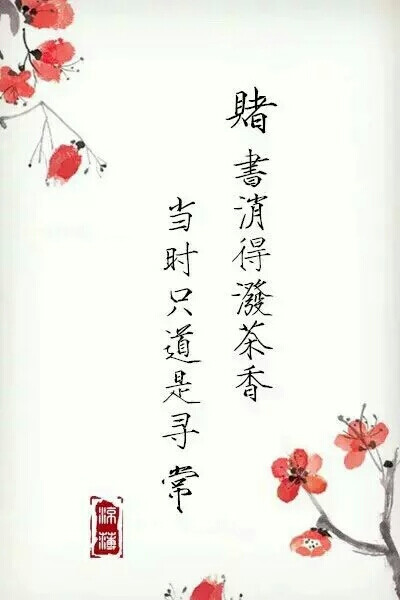 賭書消得潑茶香
当时只道是寻常